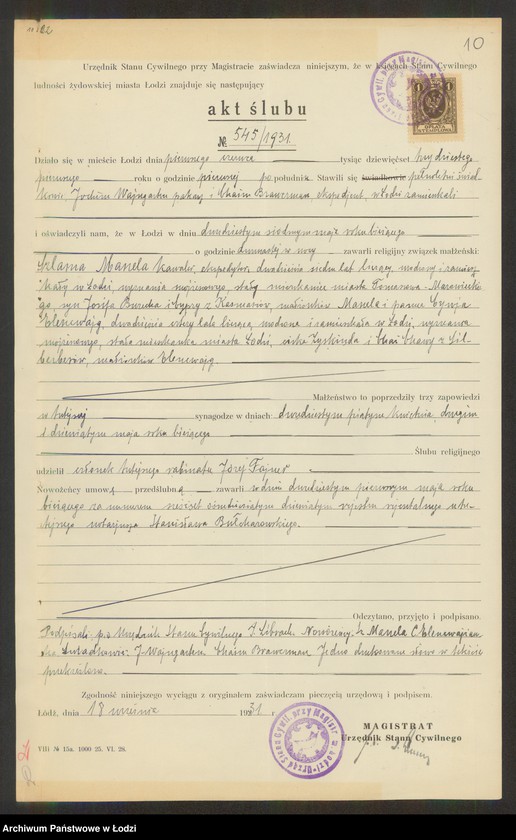 10
Urzędnik Stanu Cywilnego przy Magistracie zaświadcza niniejszym, że w księgach Stanu Cywilnego
ludności żydowskiej miasta Łodzi znajduje się następujący
akt ślubu
№ 545/1931.
Działo się w mieście Łodzi dnia pierwszego czerwca tysiąc dziewięćset trzydziestego
pierwszego roku o godzinie pierwszej po południu. Stawili się świadkowie pełnoletni świad-
kowie, Wajngarten i Chaim Brawerman ekspedjent, w Łodzi zamieszkali
i oświadczyli nam, że w Łodzi w dniu dwudziestym siódmym maja roku bieżącego
o godzinie dwunastej w nocy zawarli religijny związek małżeński:
Szlama Manela kawaler, ekspedytor, dwadzieścia siedem lat liczący, urodzony i zamiesz-
kały w Łodzi, wyznania mojżeszowego, stały mieszkaniec miasta Tomaszowa-Mazowieckie-
go, syn Josifa i z małżonków Manela i panna Cywja
Elenewajg, dwadzieścia cztery lata licząca, urodzona i zamieszkała w Łodzi, wyznania
mojżeszowego, stała mieszkanka miasta Łodzi, córka Zyskinda i Chai Chawy z Sil-
berberów, małżonków Elenewajg.
Małżeństwo to poprzedziły trzy zapowiedzi
w tutejszej synagodze w dniach: dwudziestym piątym kwietnia, drugim
i dziewiątym maja roku bieżącego
Ślubu religijnego
udzielił członek tutejszego rabinatu Josef Fajner
Nowożeńcy umowę przedślubną zawarli w dniu dwudziestym pierwszym maja roku
bieżącego za numerem sześćset osiemdziesiątym dziewiątym rejestru
notarjusza Stanisława Bułcharowskiego.
Odczytano, przyjęto i podpisano.
Podpisali: p.o. Urzędnik Stanu Cywilnego Z. Librach. Nowożeńcy: Sz. Manela C. Elenewajżan-
ka. Świadkowie: J. Wajngarten. Chaim Brawerman. Jedno drukowane słowo w tekście
przekreślono.
Zgodność niniejszego wyciągu z oryginałem zaświadczam pieczęcią urzędową i podpisem.
Łódź, dnia 18 września 1931 r.
MAGISTRAT
Urzędnik Stanu Cywilnego
VIII № 15a. 1000 25. VI. 28.
1
1
OPŁATA
STEMPLOWA
Archiwum Państwowe w Łodzi